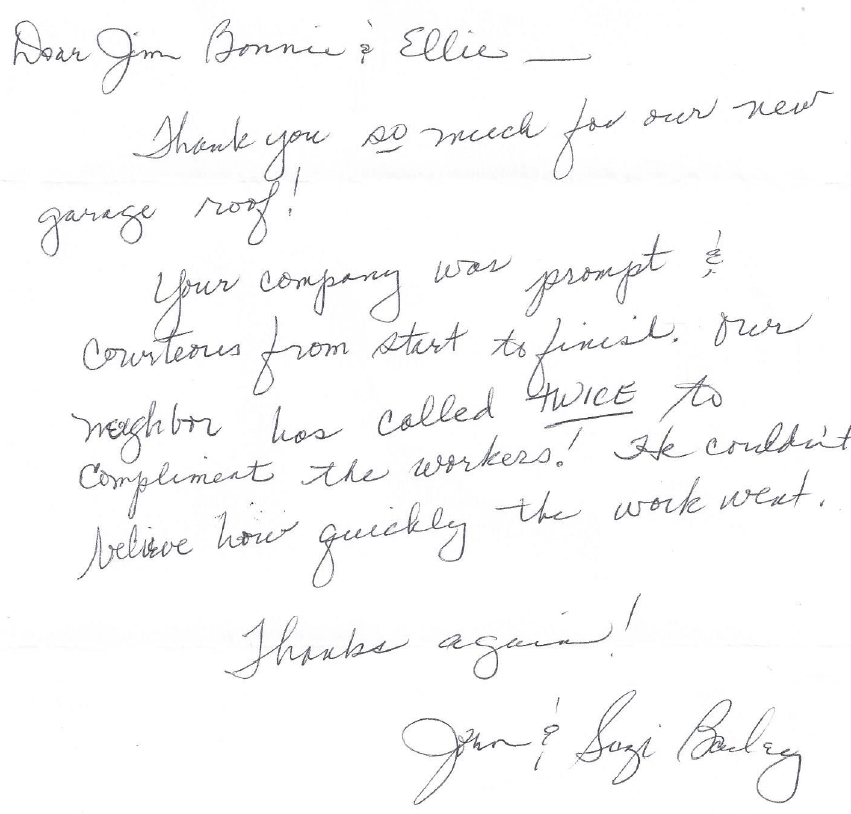 Dear Jim Bonnie & Ellie —
Thank you so much for our new
garage roof!
Your company was prompt &
courteous from start to finish. Our
neighbor has called TWICE to
compliment the workers! He couldn't
believe how quickly the work went.
Thanks again!
John & Suzi Bailey